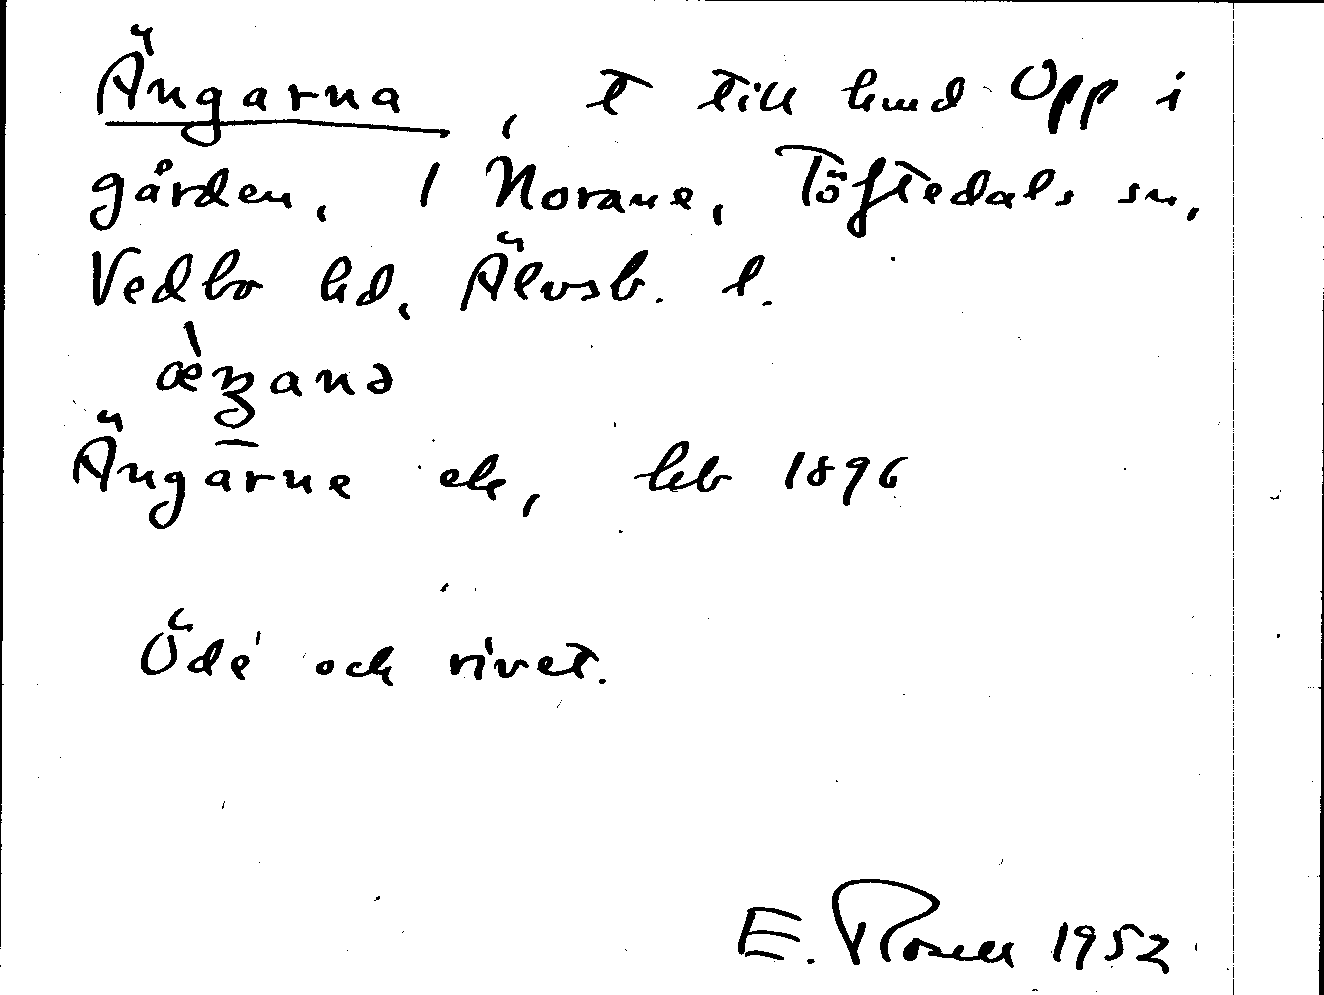 Ängarna, t till hmd Opp i
gården, 1 Norane, Töftedals sn,
Vedbo hd, Älvsb. l.
Ängarne ek, hfb 1896
Öde och rivet.
E. Rosell 1952